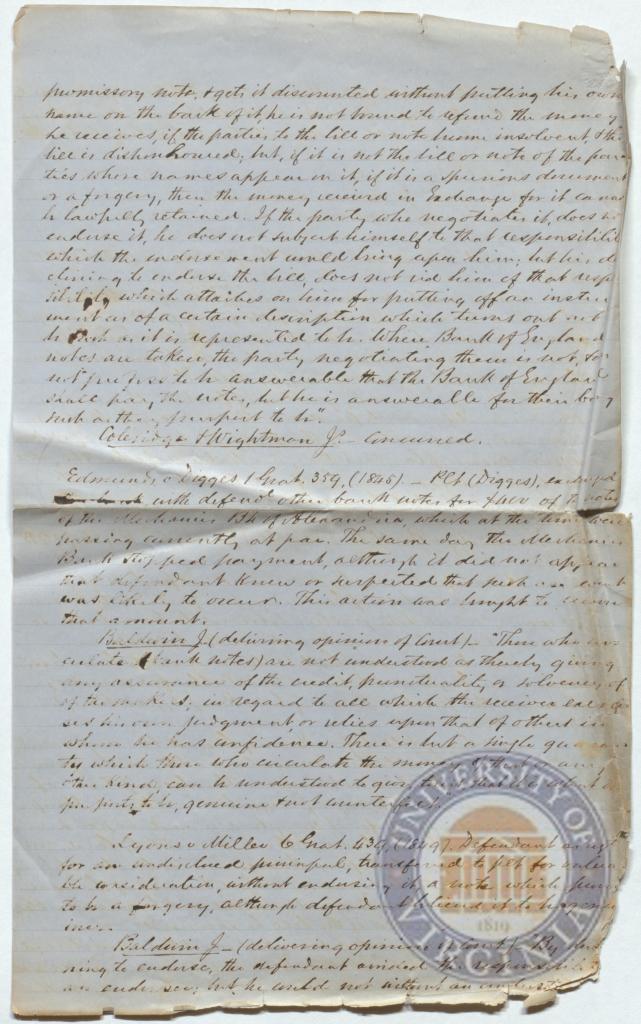 promissory note, & gets it discounted without putting his own
name on the back of it, he is not bound to refund the money
he receives, if the parties to the bill or note become insolvent, & the
bill is dishonoured; but, if it is not the bill or note of the par
ties whose names appear on it, if it is a spurious document
or a forgery, then the money received in Exchange for it cannot
be lawfully retained. If the party who negotiates it, does not
endorse it, he does not subject himself to that responsibilit
which the endorsement would bring upon him; but his de
clining to endorse the bill, does not rid him of that resp
ibility which attaches on him for putting off an instru
ment as of a certain description which turns out not
to be such as it is represented to be. Where Bank of England
notes are taken, the party negotiating them is not & do
not profess to be answerable that the Bank of England
shall pay the notes, but he is answerable for their being
such as they purport to be".
Coleridge & Wightman Js. - Concurred.
Edmunds v Digges 1 Grat. 359, (1845). - Plt (Digges), exchanged
with defend't other bank notes for $400 of the notes
of the Mechanics Bk of Alexandria, which at the time were
passing currently at par. The same day the Mechanics
Bank stopped payment, although it did not appear
that defendant knew or suspected that such an event
was likely to occur. This action was brought to recover
that amount.
Baldwin J. (delivering opinion of Court) - "Those who cir
culate (bank notes) are not understood as thereby giving
any assurance of the credit, punctuality or solvency of
of the makers; in regard to all which the receiver exerci
ses his own judgment or relies upon that of others in
whom he has confidence. There is but a single guaran
ty which those who circulate the money, & that is any
other kind, can be understood to give, that it is what it
purports to be, genuine & not counterfeit.
Lyons v Miller 6 Grat. 439, (1849). Defendant as agt
for an undisclosed principal, transferred to plt for valua
ble consideration, without endorsing it, a note which prov
to be a forgery, although defendant believed it to be genu
ine.
Baldwin J - (delivering opinion of court) - "By decli
ning to endorse, the defendant avoided the responsibility
an endorser; but he could not without an understa
UNIVERSITY OF VIRGINIA
1819